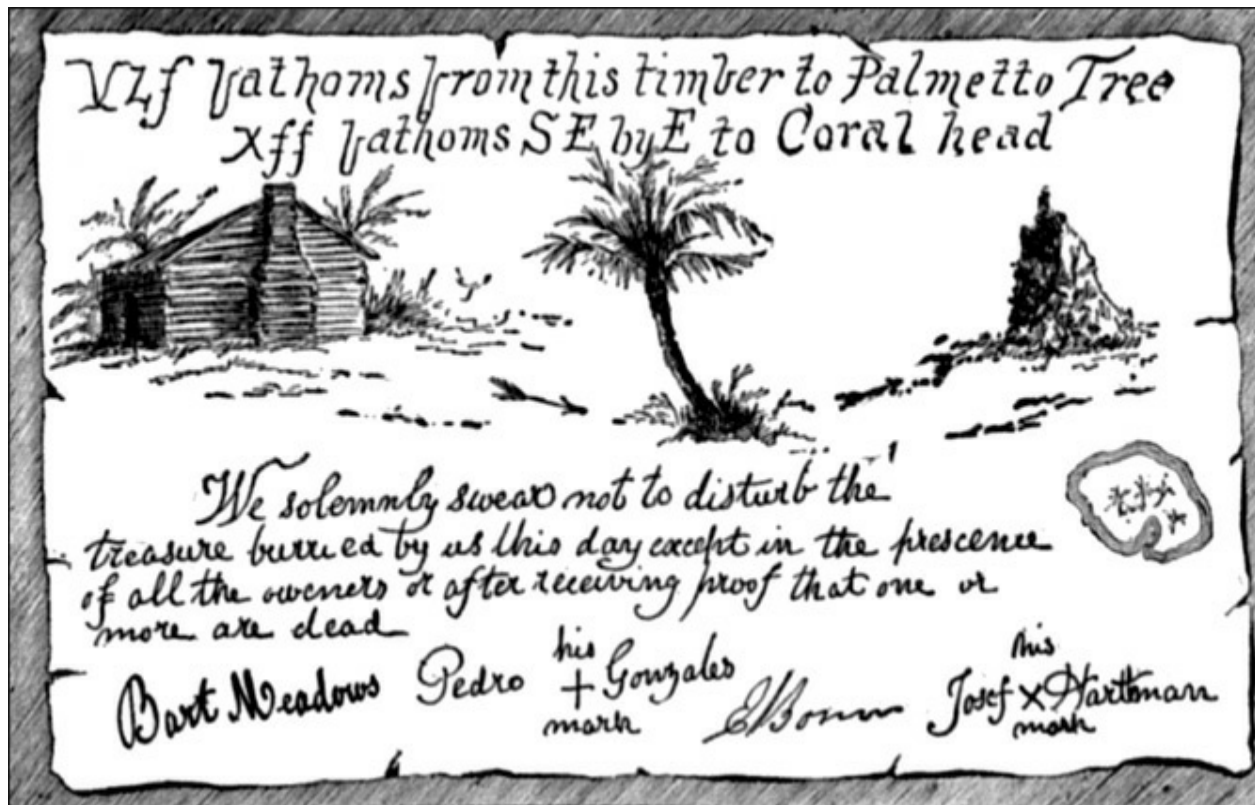 VLf fathoms from this timber to Palmetto Tree
Xff fathoms S E by E to Coral head
We solemnly swear not to disturb the
treasure burried by us this day except in the prescence
of all the owners or after receiving proof that one or
more are dead
Bart Meadows Pedro his + mark Gonzales his
Josef X Harthmann
mark